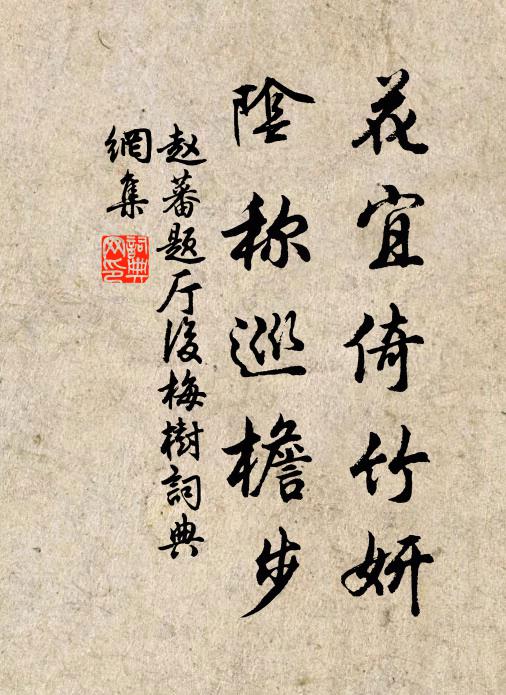 花宜倚竹妍
陰称巡檐步
赵蕃题厅後梅樹詞典
網集
詞典網印